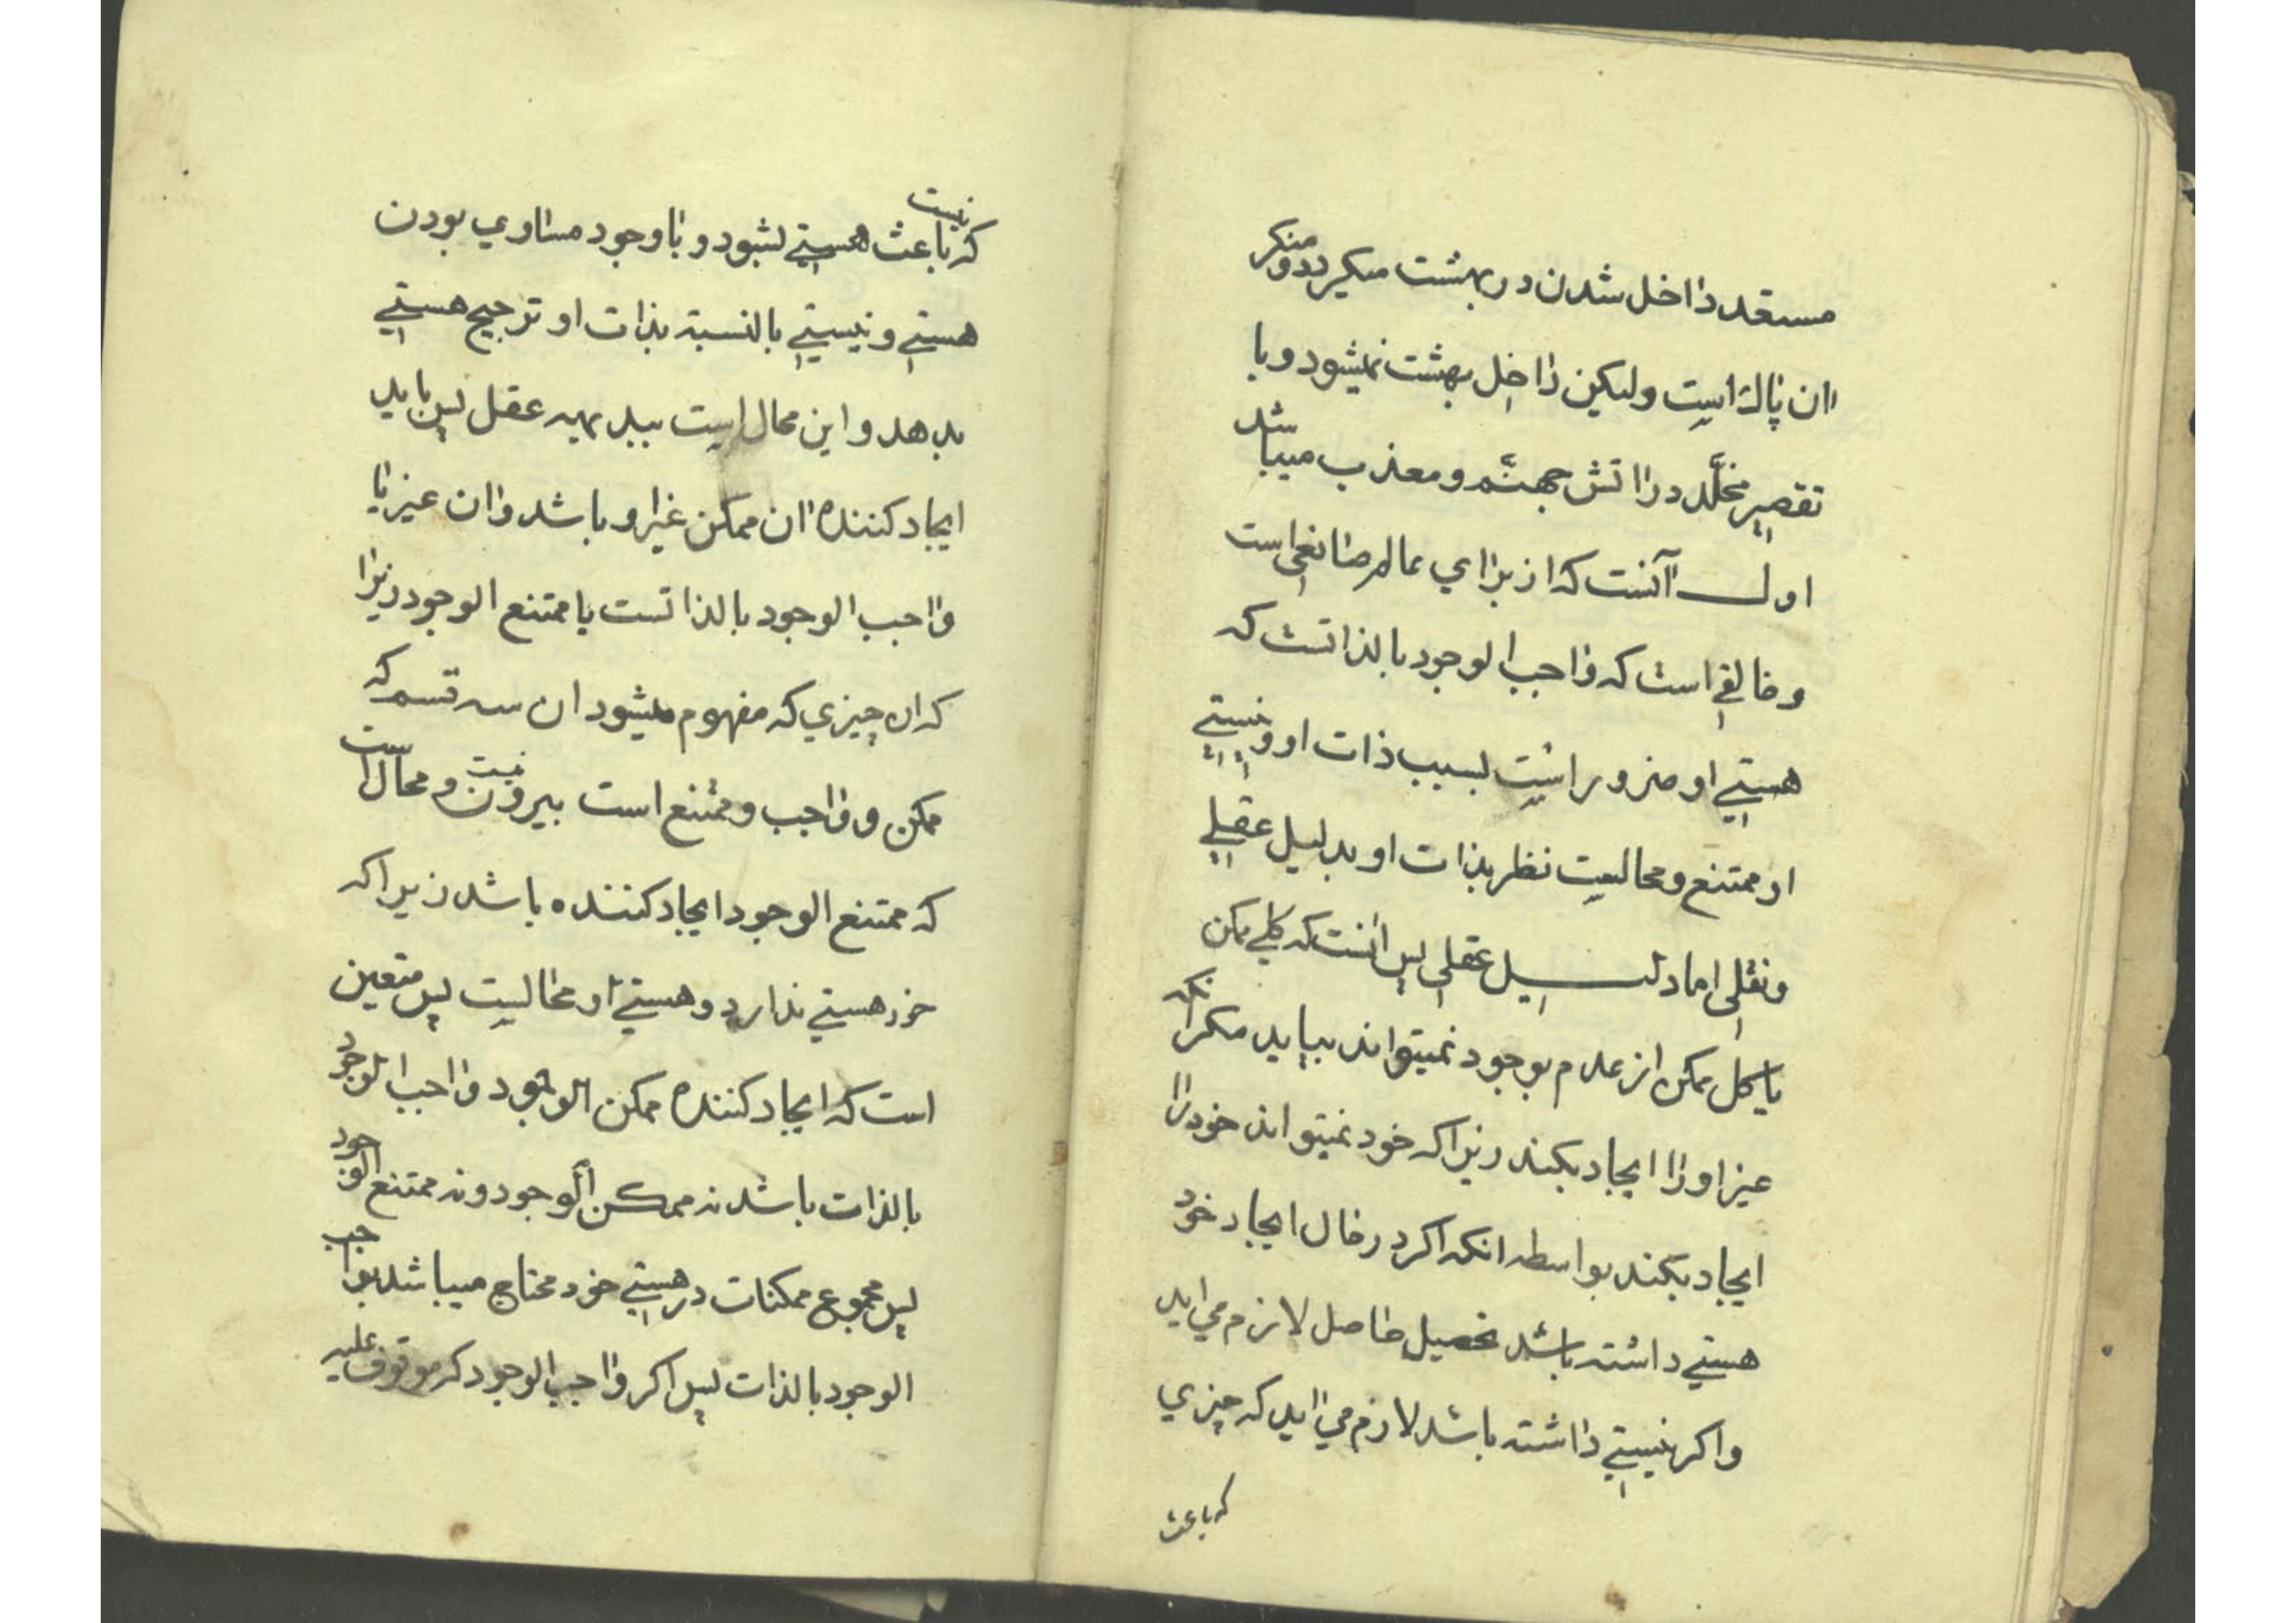 مستعد داخل شدن در بهشت میکردد و منکر
ان پاک است ولیکن داخل بهشت نمیشود و با
تقصیر مخلّد در اتش جهنّم و معذب میباشد
اول آنست که از برای عالم صانعی است
و خالقی است که واجب الوجود بالذاتست که
هستی او ضرور است بسبب ذات او و نیستی
او ممتنع و محالیست نظر بذات او بدلیل عقلی
و نقلی اما دلیل عقلی پس انست که کلی ممکن
یا کل ممکن از عدم بوجود نمیتواند بیاید مکر انکه
غیر او را ایجاد بکند زیرا که خود نمیتواند خود را
ایجاد بکند بواسطه انکه اکر در حال ایجاد خود
هستی داشته باشد تحصیل حاصل لازم می اید
و اکر نیستی داشته باشد لازم می اید که چیزی
که باعث
که باعث هستی نیست بشود و با وجود مساوی بودن
هستی و نیستی بالنسبة بذات او ترجیح هستی
بدهد و این محال است ببدیهیه عقل پس باید
ایجاد کننده ان ممکن غیر او باشد و ان غیر یا
واجب الوجود بالذاتست یا ممتنع الوجود زیرا
که ان چیزی که مفهوم میشود ان سه قسم که
ممکن و واجب و ممتنع است بیرون نیست و محال است
که ممتنع الوجود ایجاد کننده باشد زیرا که
خود هستی ندارد و هستی او محالیست پس متعین
است که ایجاد کننده ممکن الوجود واجب الوجود
بالذات باشد نه ممکن الوجود و نه ممتنع الوجود
پس مجموع ممکنات در هستی خود محتاج میباشد بواجب
الوجود بالذات پس اکر واجب الوجود که موقوف علیه